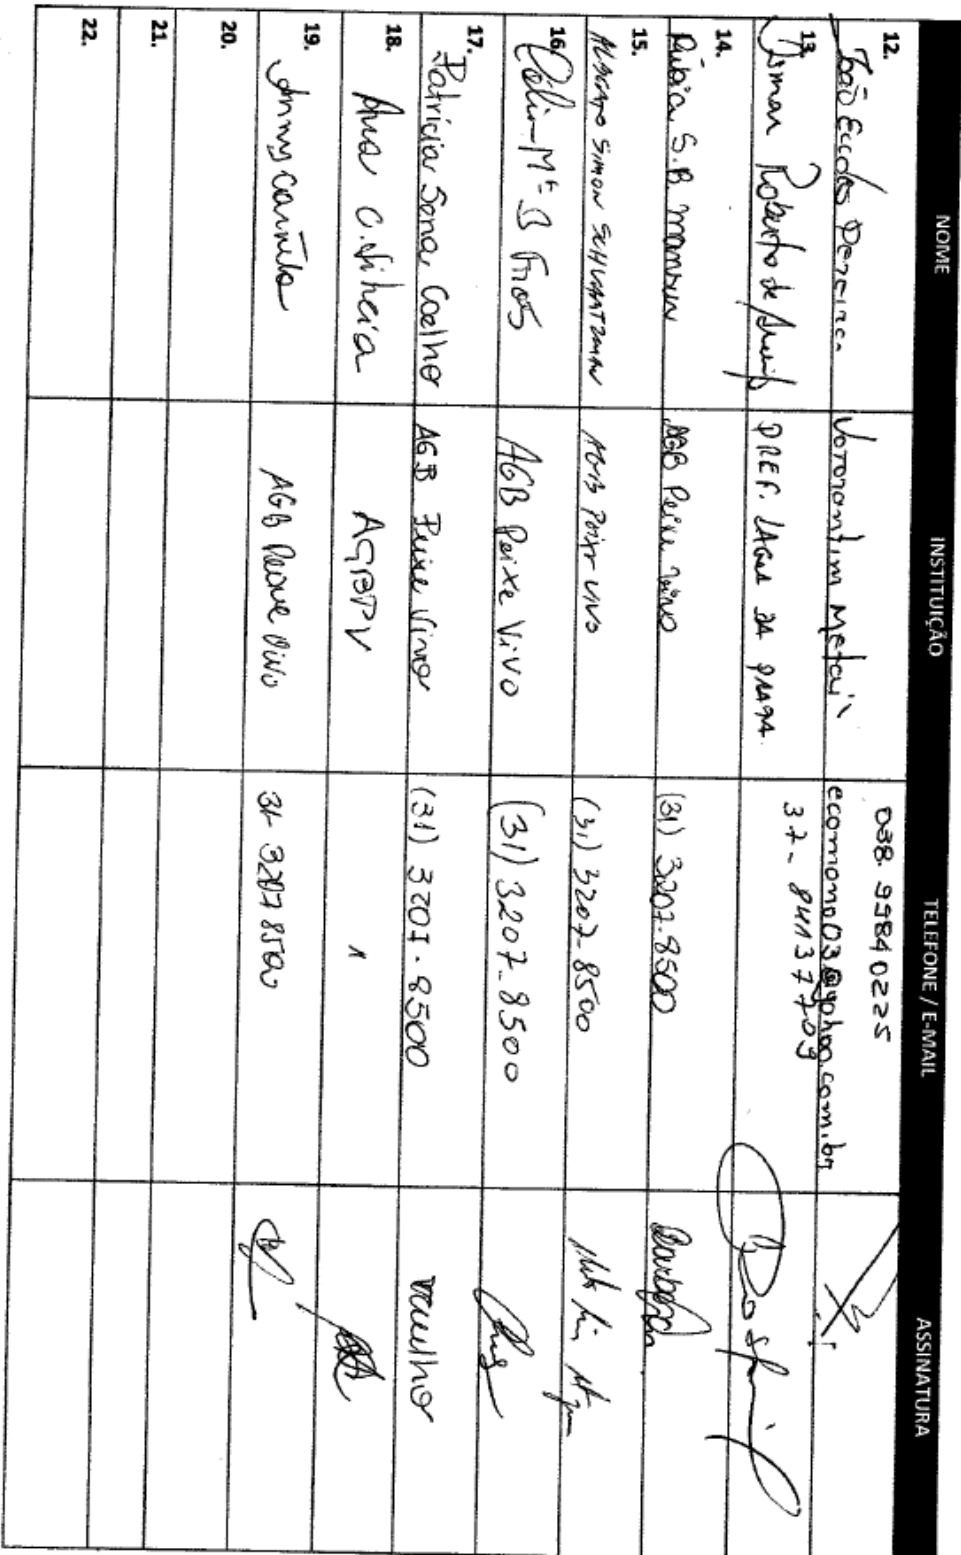 NOME INSTITUIÇÃO TELEFONE / E-MAIL ASSINATURA
12. João Eccles Pereira Votorantim Metais 038. 99840225
ecomono03@yahoo.com.br
13. Osmar Roberto de PREF. LAGOA DA PRATA. 37- 84137709
14. Rúbia S.B. Mansur AGB Peixe Vivo (31) 3207-8500
15. ALBERTO SIMON SCHVARTZMAN AGB PEIXE VIVO (31) 3207-8500
16. Célia Mª B Fróes AGB Peixe Vivo (31) 3207-8500
17. Patrícia Sena Coelho AGB Peixe Vivo (31) 3207-8500 pcoelho
18. Ana C. AGBPV "
19. Anny Camila AGB Peixe Vivo 31 32078500
20.
21.
22.